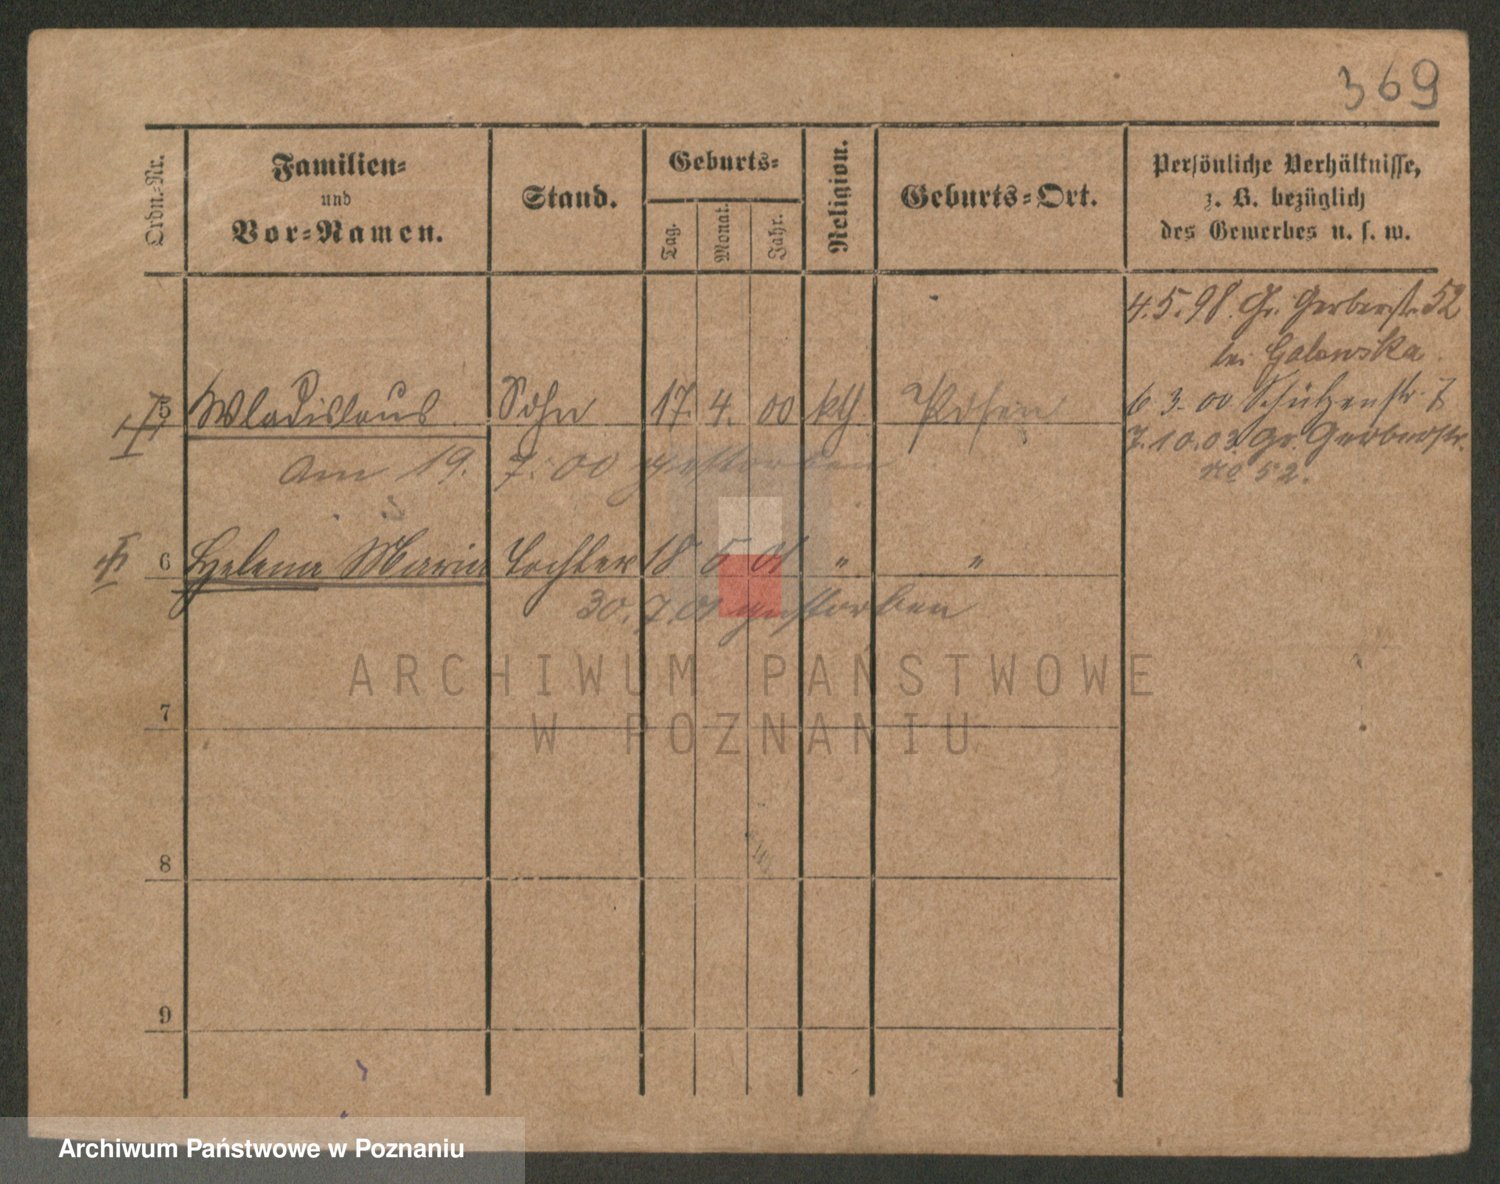 369
Ordn.-Nr.
Familien-
und
Vor-Namen.
Stand.
Geburts-
Tag.
Monat.
Jahr.
Religion.
Geburts-Ort.
Persönliche Verhältnisse,
z. B. bezüglich
des Gewerbes u. s. w.
4.5.98. Gr. Gerberstr. 52
bei Galowska.
5 Wladislaus Sohn 17. 4. 00 kth Posen
6 3. 00 Schützenstr. 7
am 19. 7. 00 gestorben
7.10.03. Gr. Gerberstr.
No 52.
6 Helena Maria Tochter 18 5 01 " "
30. 7. 01 gestorben
7
8
9
ARCHIWUM PAŃSTWOWE
W POZNANIU
Archiwum Państwowe w Poznaniu